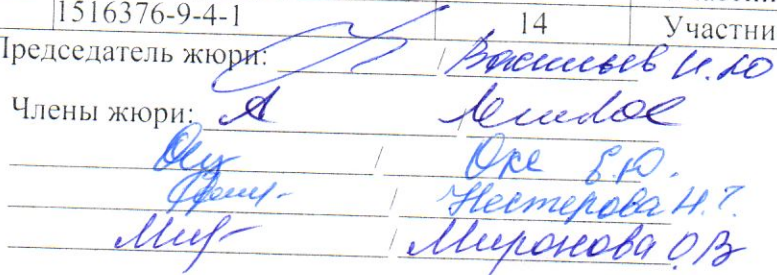 1516376-9-4-1 14 Участни
Председатель жюри: / Васильев И.Ю
Члены жюри:
/ Оке Е.Ю.
/ Нестерова Н.Т.
/ Миронова О.В